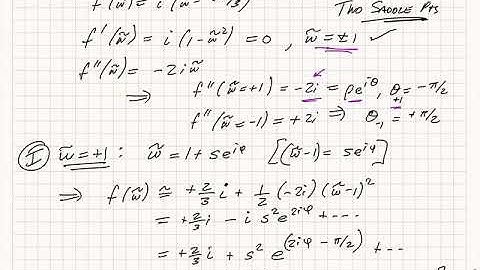 f(w̃) = i (w̃ - w̃³/3) Two Saddle Pts
f'(w̃) = i (1-w̃²) = 0 , w̃ = ±1 ✓
f''(w̃) = -2i w̃
⇒ f''(w̃=+1) = -2i = ρe^{iθ}, θ₊₁ = -π/2
f''(w̃=-1) = +2i ⇒ θ₋₁ = +π/2
I w̃=+1 : w̃ = 1 + s e^{iφ} [(w̃-1) = s e^{iφ}]
⇒ f(w̃) ≅ +2/3 i + 1/2 (-2i) (w̃-1)²
= +2/3 i - i s² e^{2iφ} + ---
= +2/3 i + s² e^{(2iφ - π/2)} + --